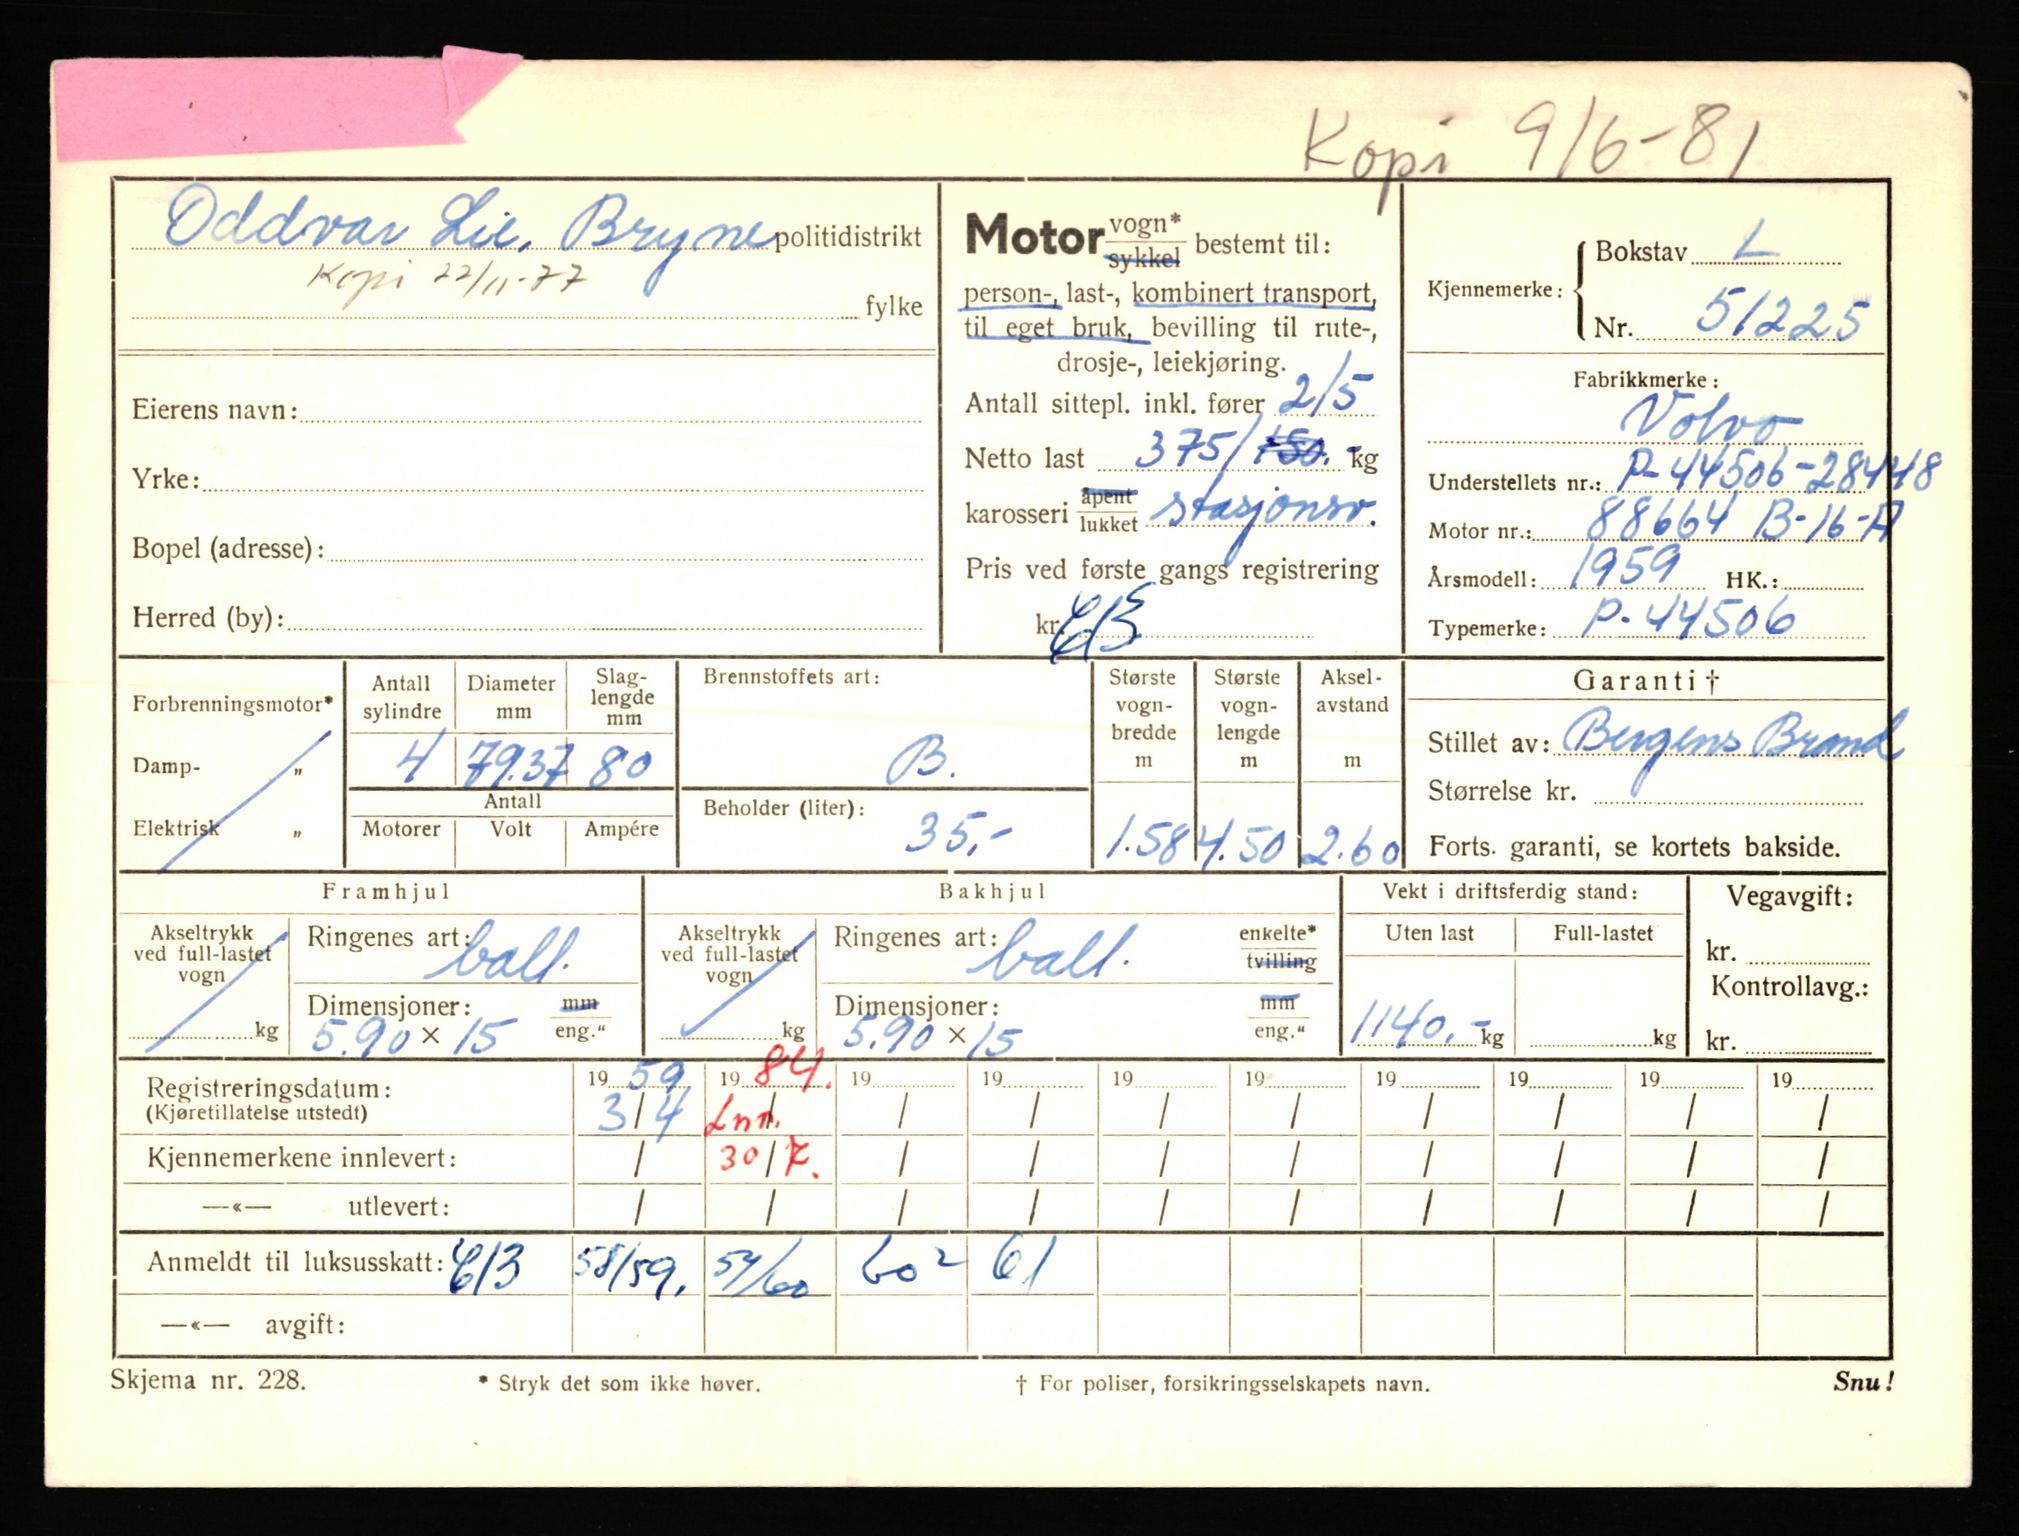 Kopi 9/6-81
Oddvar Lie, Bryne politidistrikt
Kopi 22/11-77
fylke
Eierens navn:
Yrke:
Bopel (adresse):
Herred (by):
Motor vogn* sykkel bestemt til:
person-, last-, kombinert transport,
til eget bruk, bevilling til rute-,
drosje-, leiekjøring.
Antall sittepl. inkl. fører 2/5
Netto last 375/150. kg
karosseri åpent lukket stasjonsv.
Pris ved første gangs registrering
kr.
Kjennemerke: Bokstav L
Nr. 51225
Fabrikkmerke:
Volvo
Understellets nr.: P-44506-28448
Motor nr.: 88664 B-16-A
Årsmodell: 1959 HK.:
Typemerke: P-44506
Forbrenningsmotor*
Damp- „
Elektrisk „
Antall sylindre
Diameter mm
Slaglengde mm
4 79.37 80
Antall
Motorer Volt Ampére
Brennstoffets art:
B.
Beholder (liter):
35,-
Største vognbredde m
1.58
Største vognlengde m
4.50
Akselavstand m
2.60
Garanti †
Stillet av: Bergens Brand
Størrelse kr.
Forts. garanti, se kortets bakside.
Framhjul
Akseltrykk ved full-lastet vogn
kg
Ringenes art: ball.
Dimensjoner: mm
5.90 × 15 eng."
Bakhjul
Akseltrykk ved full-lastet vogn
kg
Ringenes art: ball. enkelte* tvilling
Dimensjoner: mm
5.90 × 15 eng."
Vekt i driftsferdig stand:
Uten last Full-lastet
1140,- kg kg
Vegavgift:
kr.
Kontrollavg.:
kr.
Registreringsdatum: 19 59 19 84. 19 19 19 19 19 19 19 19
(Kjøretillatelse utstedt) 3/4 Inn. / / / / / / / /
Kjennemerkene innlevert: / 30/7. / / / / / / / /
—«— utlevert: / / / / / / / / / /
Anmeldt til luksusskatt: 58/59. 59/60 60² 61
—«— avgift:
Skjema nr. 228. * Stryk det som ikke høver. † For poliser, forsikringsselskapets navn. Snu!